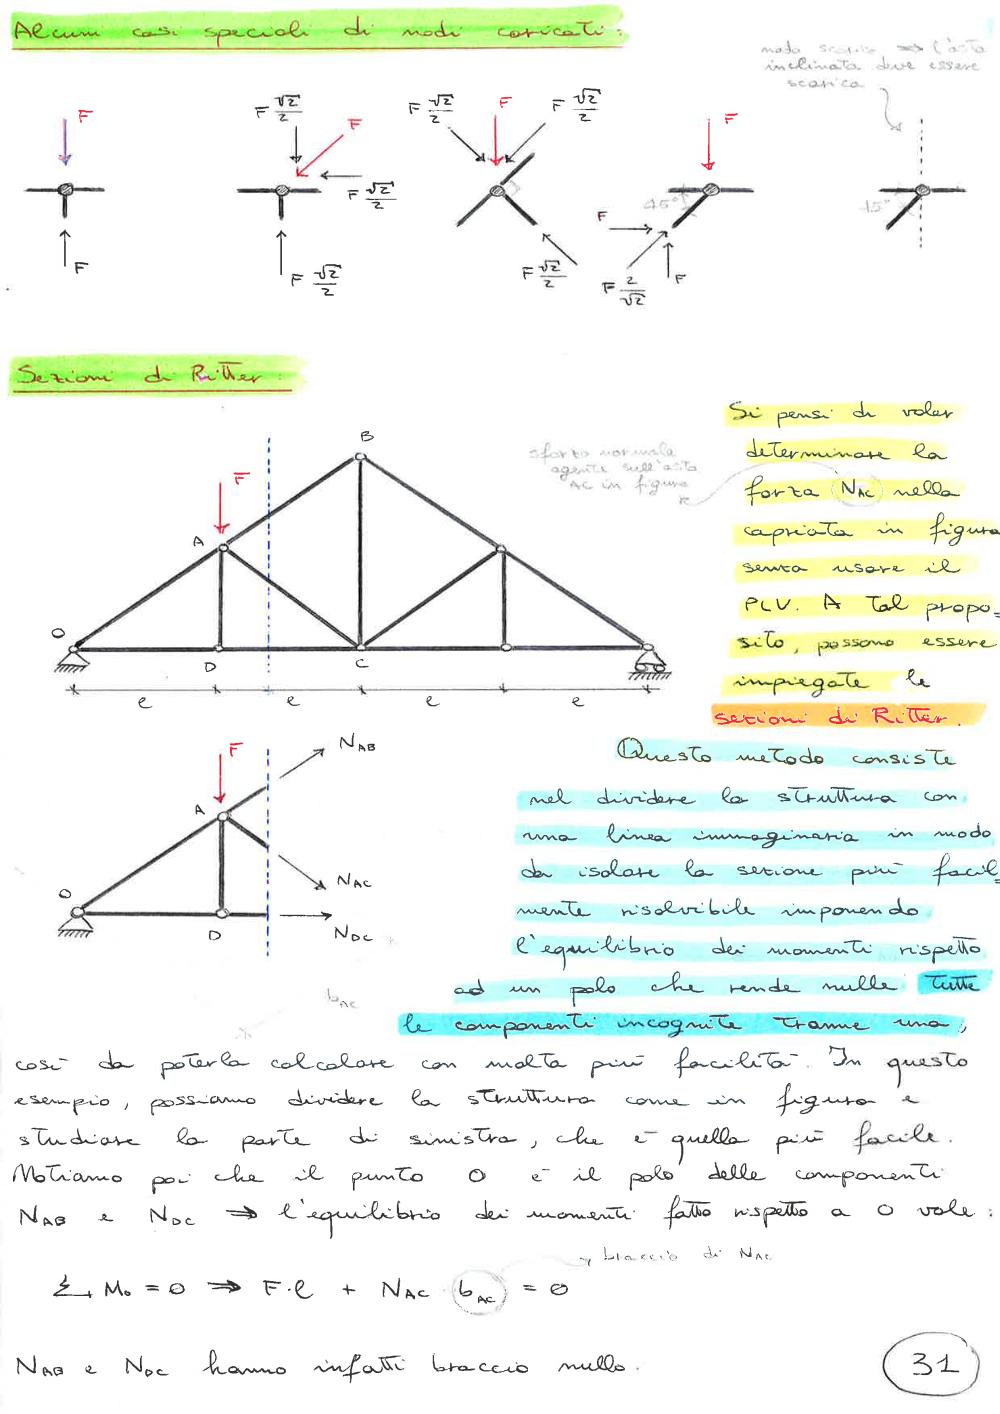 Alcuni casi speciali di nodi caricati:
nodo scarico ⇒ l'asta
inclinata deve essere
scarica
F
F
F √2/2
F
F √2/2
F √2/2
F √2/2
F
F √2/2
F √2/2
F
45°
F
F 2/√2
F
45°
Sezioni di Ritter:
F
B
A
O
D
C
l
l
l
l
sforzo normale
agente sull'asta
AC in figura
Si pensi di voler
determinare la
forza N_AC nella
capriata in figura
senza usare il
PLV. A tal propo=
sito, possono essere
impiegate le
sezioni di Ritter.
F
N_AB
A
N_AC
O
D
N_DC
b_AC
Questo metodo consiste
nel dividere la struttura con
una linea immaginaria in modo
da isolare la sezione più facil=
mente risolvibile imponendo
l'equilibrio dei momenti rispetto
ad un polo che rende nulle tutte
le componenti incognite tranne una,
così da poterla calcolare con molta più facilità. In questo
esempio, possiamo dividere la struttura come in figura e
studiare la parte di sinistra, che è quella più facile.
Notiamo poi che il punto O è il polo delle componenti
N_AB e N_DC ⇒ l'equilibrio dei momenti fatto rispetto a O vale:
braccio di N_AC
Σ M_o = 0 ⇒ F·l + N_AC b_AC = 0
N_AB e N_DC hanno infatti braccio nullo.
31